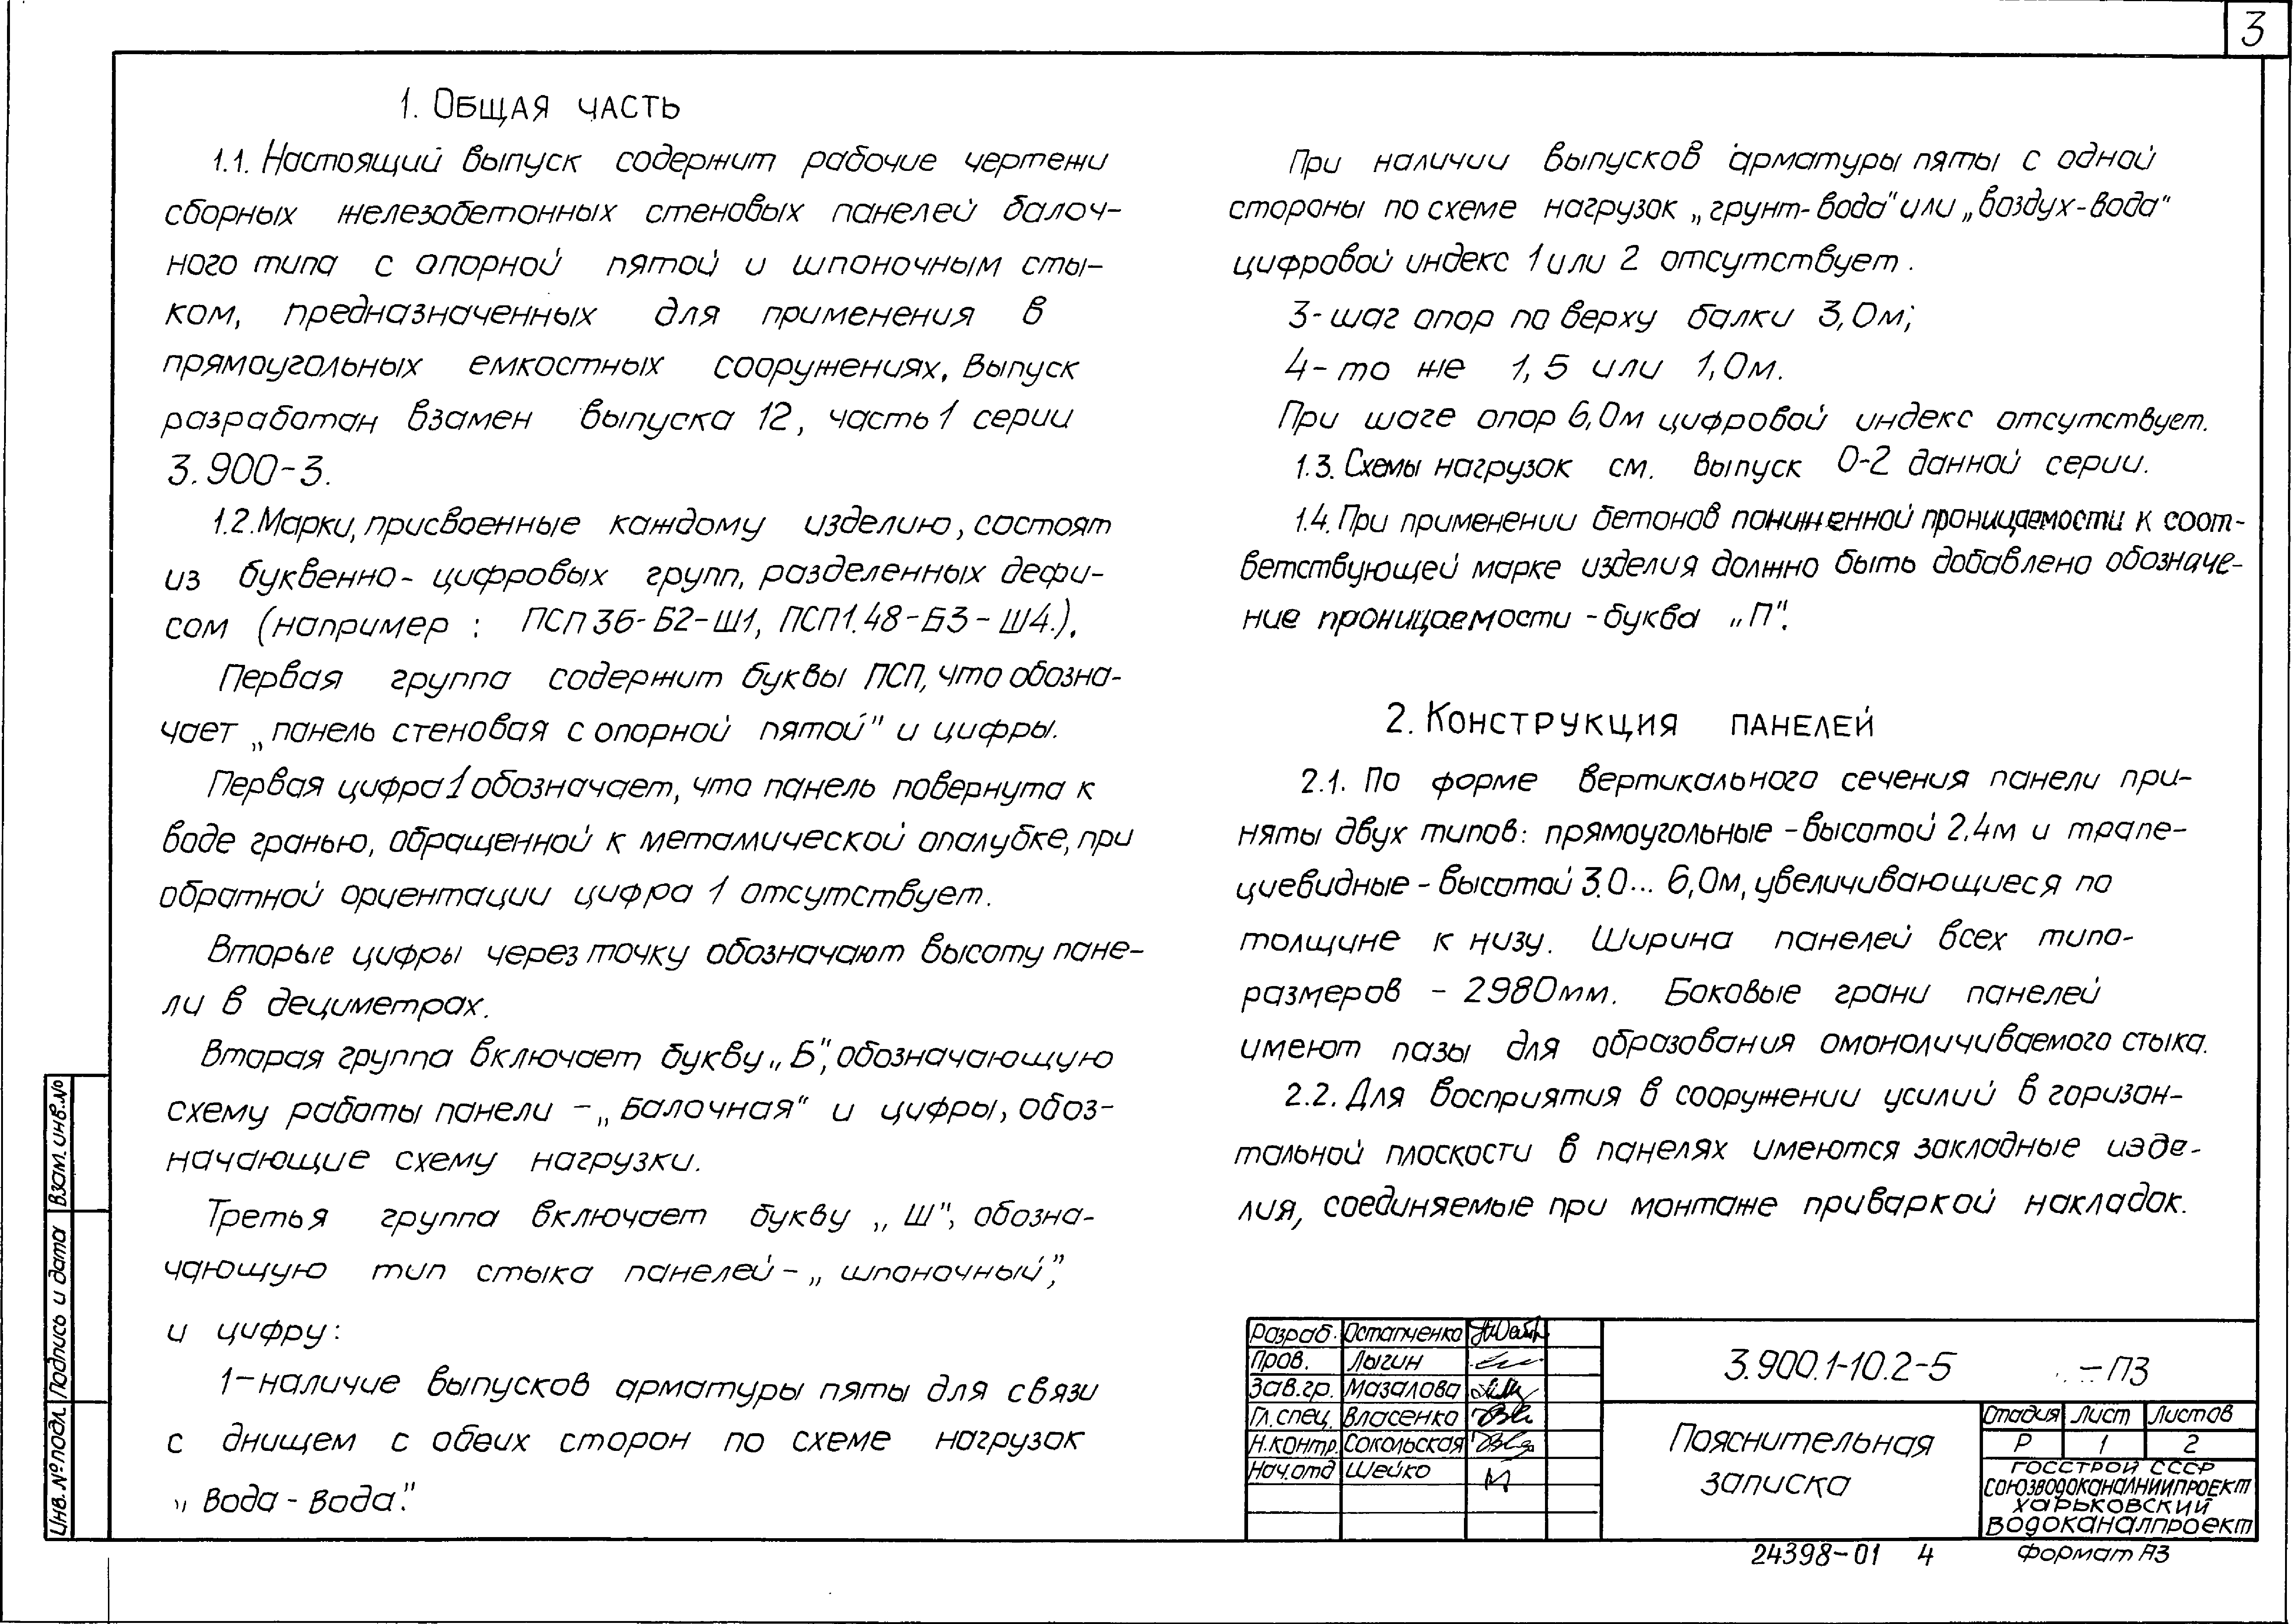 3
1. Общая часть
1.1. Настоящий выпуск содержит рабочие чертежи
сборных железобетонных стеновых панелей балоч-
ного типа с опорной пятой и шпоночным сты-
ком, предназначенных для применения в
прямоугольных емкостных сооружениях. Выпуск
разработан взамен выпуска 12, часть 1 серии
3.900-3.
1.2. Марки, присвоенные каждому изделию, состоят
из буквенно-цифровых групп, разделенных дефи-
сом (например: ПСП 36-Б2-Ш1, ПСП1.48-Б3-Ш4.).
Первая группа содержит буквы ПСП, что обозна-
чает „панель стеновая с опорной пятой" и цифры.
Первая цифра 1 обозначает, что панель повернута к
воде гранью, обращенной к металлической опалубке, при
обратной ориентации цифра 1 отсутствует.
Вторые цифры через точку обозначают высоту пане-
ли в дециметрах.
Вторая группа включает букву „Б", обозначающую
схему работы панели - „Балочная" и цифры, обоз-
начающие схему нагрузки.
Третья группа включает букву „Ш", обозна-
чающую тип стыка панелей - „шпоночный",
и цифру:
1-наличие выпусков арматуры пяты для связи
с днищем с обеих сторон по схеме нагрузок
„вода-вода".
При наличии выпусков арматуры пяты с одной
стороны по схеме нагрузок „грунт-вода" или „воздух-вода"
цифровой индекс 1 или 2 отсутствует.
3-шаг опор по верху балки 3,0м;
4-то же 1,5 или 1,0м.
При шаге опор 6,0м цифровой индекс отсутствует.
1.3. Схемы нагрузок см. выпуск 0-2 данной серии.
1.4. При применении бетонов пониженной проницаемости к соот-
ветствующей марке изделия должно быть добавлено обозначе-
ние проницаемости - буква „П".
2. Конструкция панелей
2.1. По форме вертикального сечения панели при-
няты двух типов: прямоугольные - высотой 2.4м и трапе-
циевидные - высотой 3.0... 6,0м, увеличивающиеся по
толщине к низу. Ширина панелей всех типо-
размеров - 2980мм. Боковые грани панелей
имеют пазы для образования омоноличиваемого стыка.
2.2. Для восприятия в сооружении усилий в горизон-
тальной плоскости в панелях имеются закладные изде-
лия, соединяемые при монтаже приваркой накладок.
Разраб. Остапченко
Пров. Лыгин
Зав.гр. Мазалова
Гл.спец. Власенко
Н.контр. Сокольская
Нач.отд Шейко
3.900.1-10.2-5 -ПЗ
Пояснительная
записка
Стадия Лист Листов
Р 1 2
ГОССТРОЙ СССР
СОЮЗВОДОКАНАЛНИИПРОЕКТ
ХАРЬКОВСКИЙ
ВОДОКАНАЛПРОЕКТ
24398-01 4 Формат А3
Взам. инв.№
Подпись и дата
Инв.№ подл.